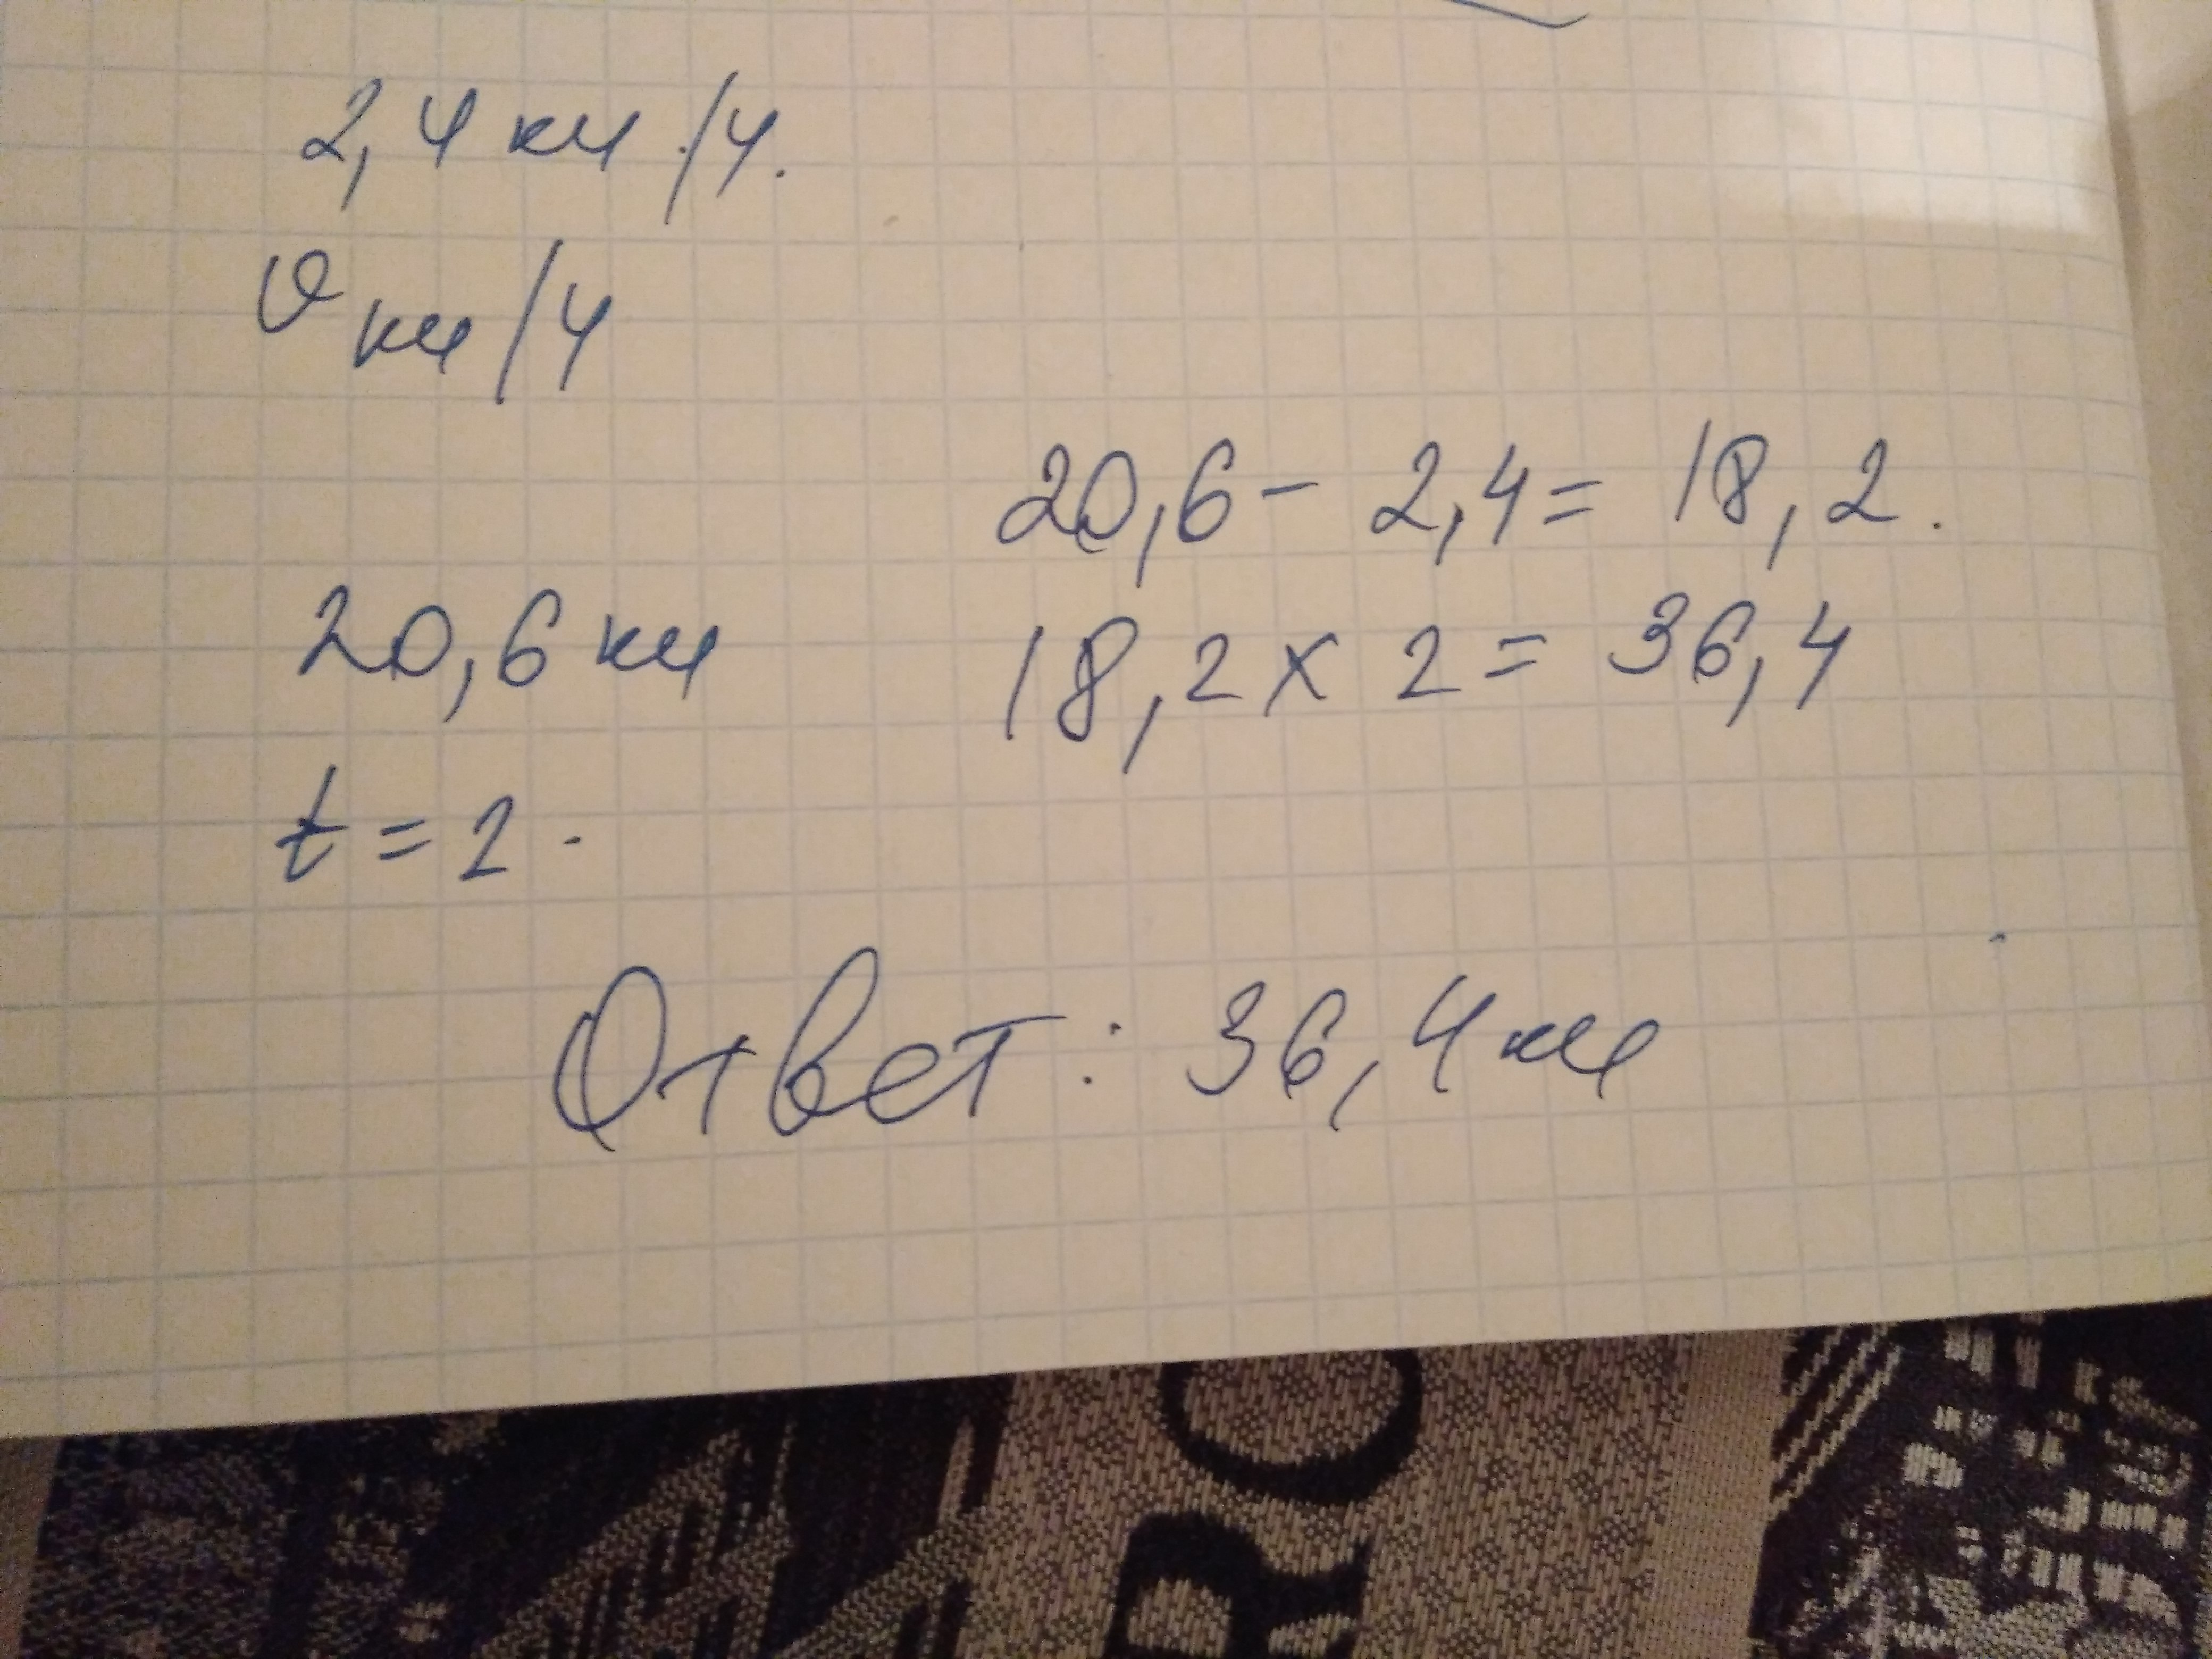 2,4 км/ч.
v км/ч
20,6 - 2,4 = 18,2.
20,6 км
18,2 x 2 = 36,4
t = 2.
Ответ: 36,4 км